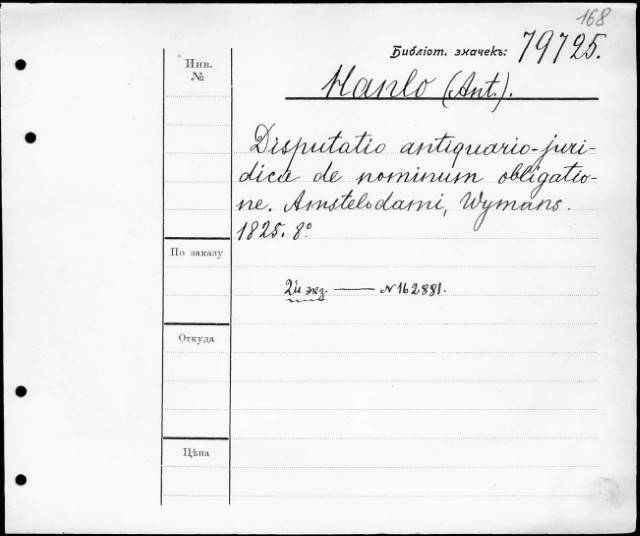 168
Библіот. значекъ: 79725.
Инв.
№
Hanlo (Ant.).
Disputatio antiquario-juri-
dica de nominum obligatio-
ne. Amstelodami, Wymans.
1825. 8°
По заказу
2й экз. — N162881.
Откуда
Цѣна